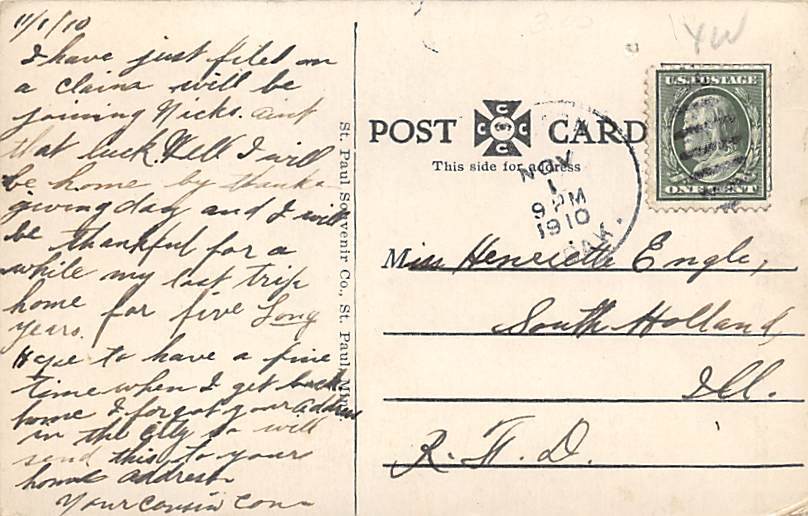 11/1/10
I have just filed on
a claim will be
joining Nicks. aint
that luck. Well I will
be home by thanks-
givingday and I will
be thankful for a
while my last trip
home for five Long
years.
Hope to have a fine
time when I get back
home I forgot your address
in the city so will
send this to your
home address.
Your Cousin Con
St. Paul Souvenir Co., St. Paul, Minn.
POST CARD
C C C C
This side for address
NOV
1
9 PM
1910
DAK.
U.S. POSTAGE
ONE CENT
Miss Henriette Engle,
South Holland,
Ill.
R. F. D.